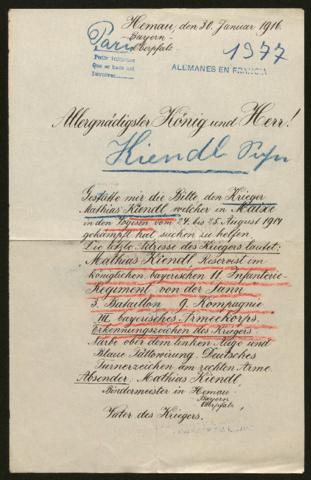 Hemau, den 30. Januar 1916.
Bayern
Oberpfalz.
Paris
1977
ALEMANES EN FRANCIA
Allergnädigster König und Herr!
Kiendl
Gestatte mir die Bitte, den Krieger
Mathias Kiendl, welcher in
in den Vogesen vom 24. bis 25. August 1914
gekämpft hat, suchen zu helfen.
Die letzte Adresse des Kriegers lautet:
Mathias Kiendl Reservist im
königlichen bayerischen 11. Infanterie-
Regiment von der Tann
3. Bataillon 9. Kompagnie
III. bayerisches Armeekorps.
Erkennungszeichen des Kriegers
Narbe ober dem linken Auge und
Blaue Tättowirung. Deutsches
Turnerzeichen am rechten Arme.
Absender: Mathias Kiendl,
Bindermeister in Hemau
Bayern
Oberpfalz
Vater des Kriegers.